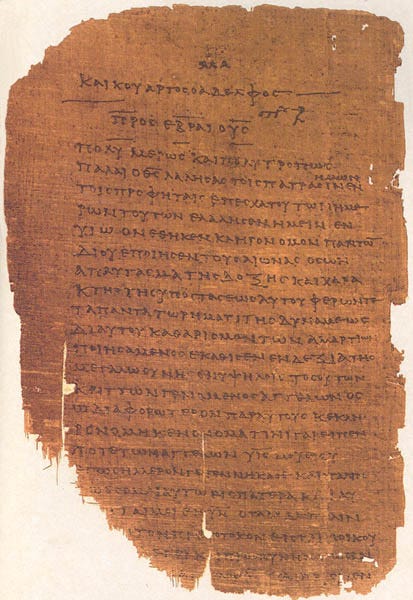 ΚΑΙ ΚΟΥΑΡΤΟΣ Ο ΑΔΕΛΦΟΣ
ΠΡΟΣ ΕΒΡΑΙΟΥΣ
ΠΟΛΥΜΕΡΩΣ ΚΑΙ ΠΟΛΥΤΡΟΠΩΣ
ΗΜΩΝ
ΠΑΛΑΙ Ο ΘΣ ΛΑΛΗΣΑΣ ΤΟΙΣ ΠΑΤΡΑΣΙΝ ΕΝ
ΤΟΙΣ ΠΡΟΦΗΤΑΙΣ ΕΠ ΕΣΧΑΤΟΥ ΤΩΝ ΗΜΕ
ΡΩΝ ΤΟΥΤΩΝ ΕΛΑΛΗΣΕΝ ΗΜΕΙΝ ΕΝ
ΥΙΩ ΟΝ ΕΘΗΚΕΝ ΚΛΗΡΟΝΟΜΟΝ ΠΑΝΤΩ
ΔΙ ΟΥ ΕΠΟΙΗΣΕΝ ΤΟΥΣ ΑΙΩΝΑΣ ΟΣ ΩΝ
ΑΠΑΥΓΑΣΜΑ ΤΗΣ ΔΟΞΗΣ ΚΑΙ ΧΑΡΑ
ΚΤΗΡ ΤΗΣ ΥΠΟΣΤΑΣΕΩΣ ΑΥΤΟΥ ΦΕΡΩΝ ΤΕ
ΤΑ ΠΑΝΤΑ ΤΩ ΡΗΜΑΤΙ ΤΗΣ ΔΥΝΑΜΕΩΣ
ΔΙ ΑΥΤΟΥ ΚΑΘΑΡΙΣΜΟΝ ΤΩΝ ΑΜΑΡΤΙΩ
ΠΟΙΗΣΑΜΕΝΟΣ ΕΚΑΘΙΣΕΝ ΕΝ ΔΕΞΙΑ ΤΗΣ
ΜΕΓΑΛΩΣΥΝΗΣ ΕΝ ΥΨΗΛΟΙΣ ΤΟΣΟΥΤΩ
ΚΡΙΤΤΩΝ ΓΕΝΟΜΕΝΟΣ ΑΓΓΕΛΩΝ ΟΣ
Ω ΔΙΑΦΟΡΩΤΕΡΟΝ ΠΑΡ ΑΥΤΟΥΣ ΚΕΚΛΗ
ΡΟΝΟΜΗΚΕΝ ΟΝΟΜΑ ΤΙΝΙ ΓΑΡ ΕΙΠΕΝ
ΠΟΤΕ ΤΩΝ ΑΓΓΕΛΩΝ ΥΙΣ ΜΟΥ ΕΙ ΣΥ
ΕΓΩ ΣΗΜΕΡΟΝ ΓΕΓΕΝΝΗΚΑ ΣΕ ΚΑΙ ΠΑΛΙΝ
ΑΥΤΩ ΕΙΣ ΠΑΤΕΡΑ ΚΑΙ ΑΥ
ΟΤΑΝ ΔΕ ΠΑΛΙΝ
ΤΟΚΟΝ ΕΙΣ ΤΗΝ ΟΙΚΟΥ